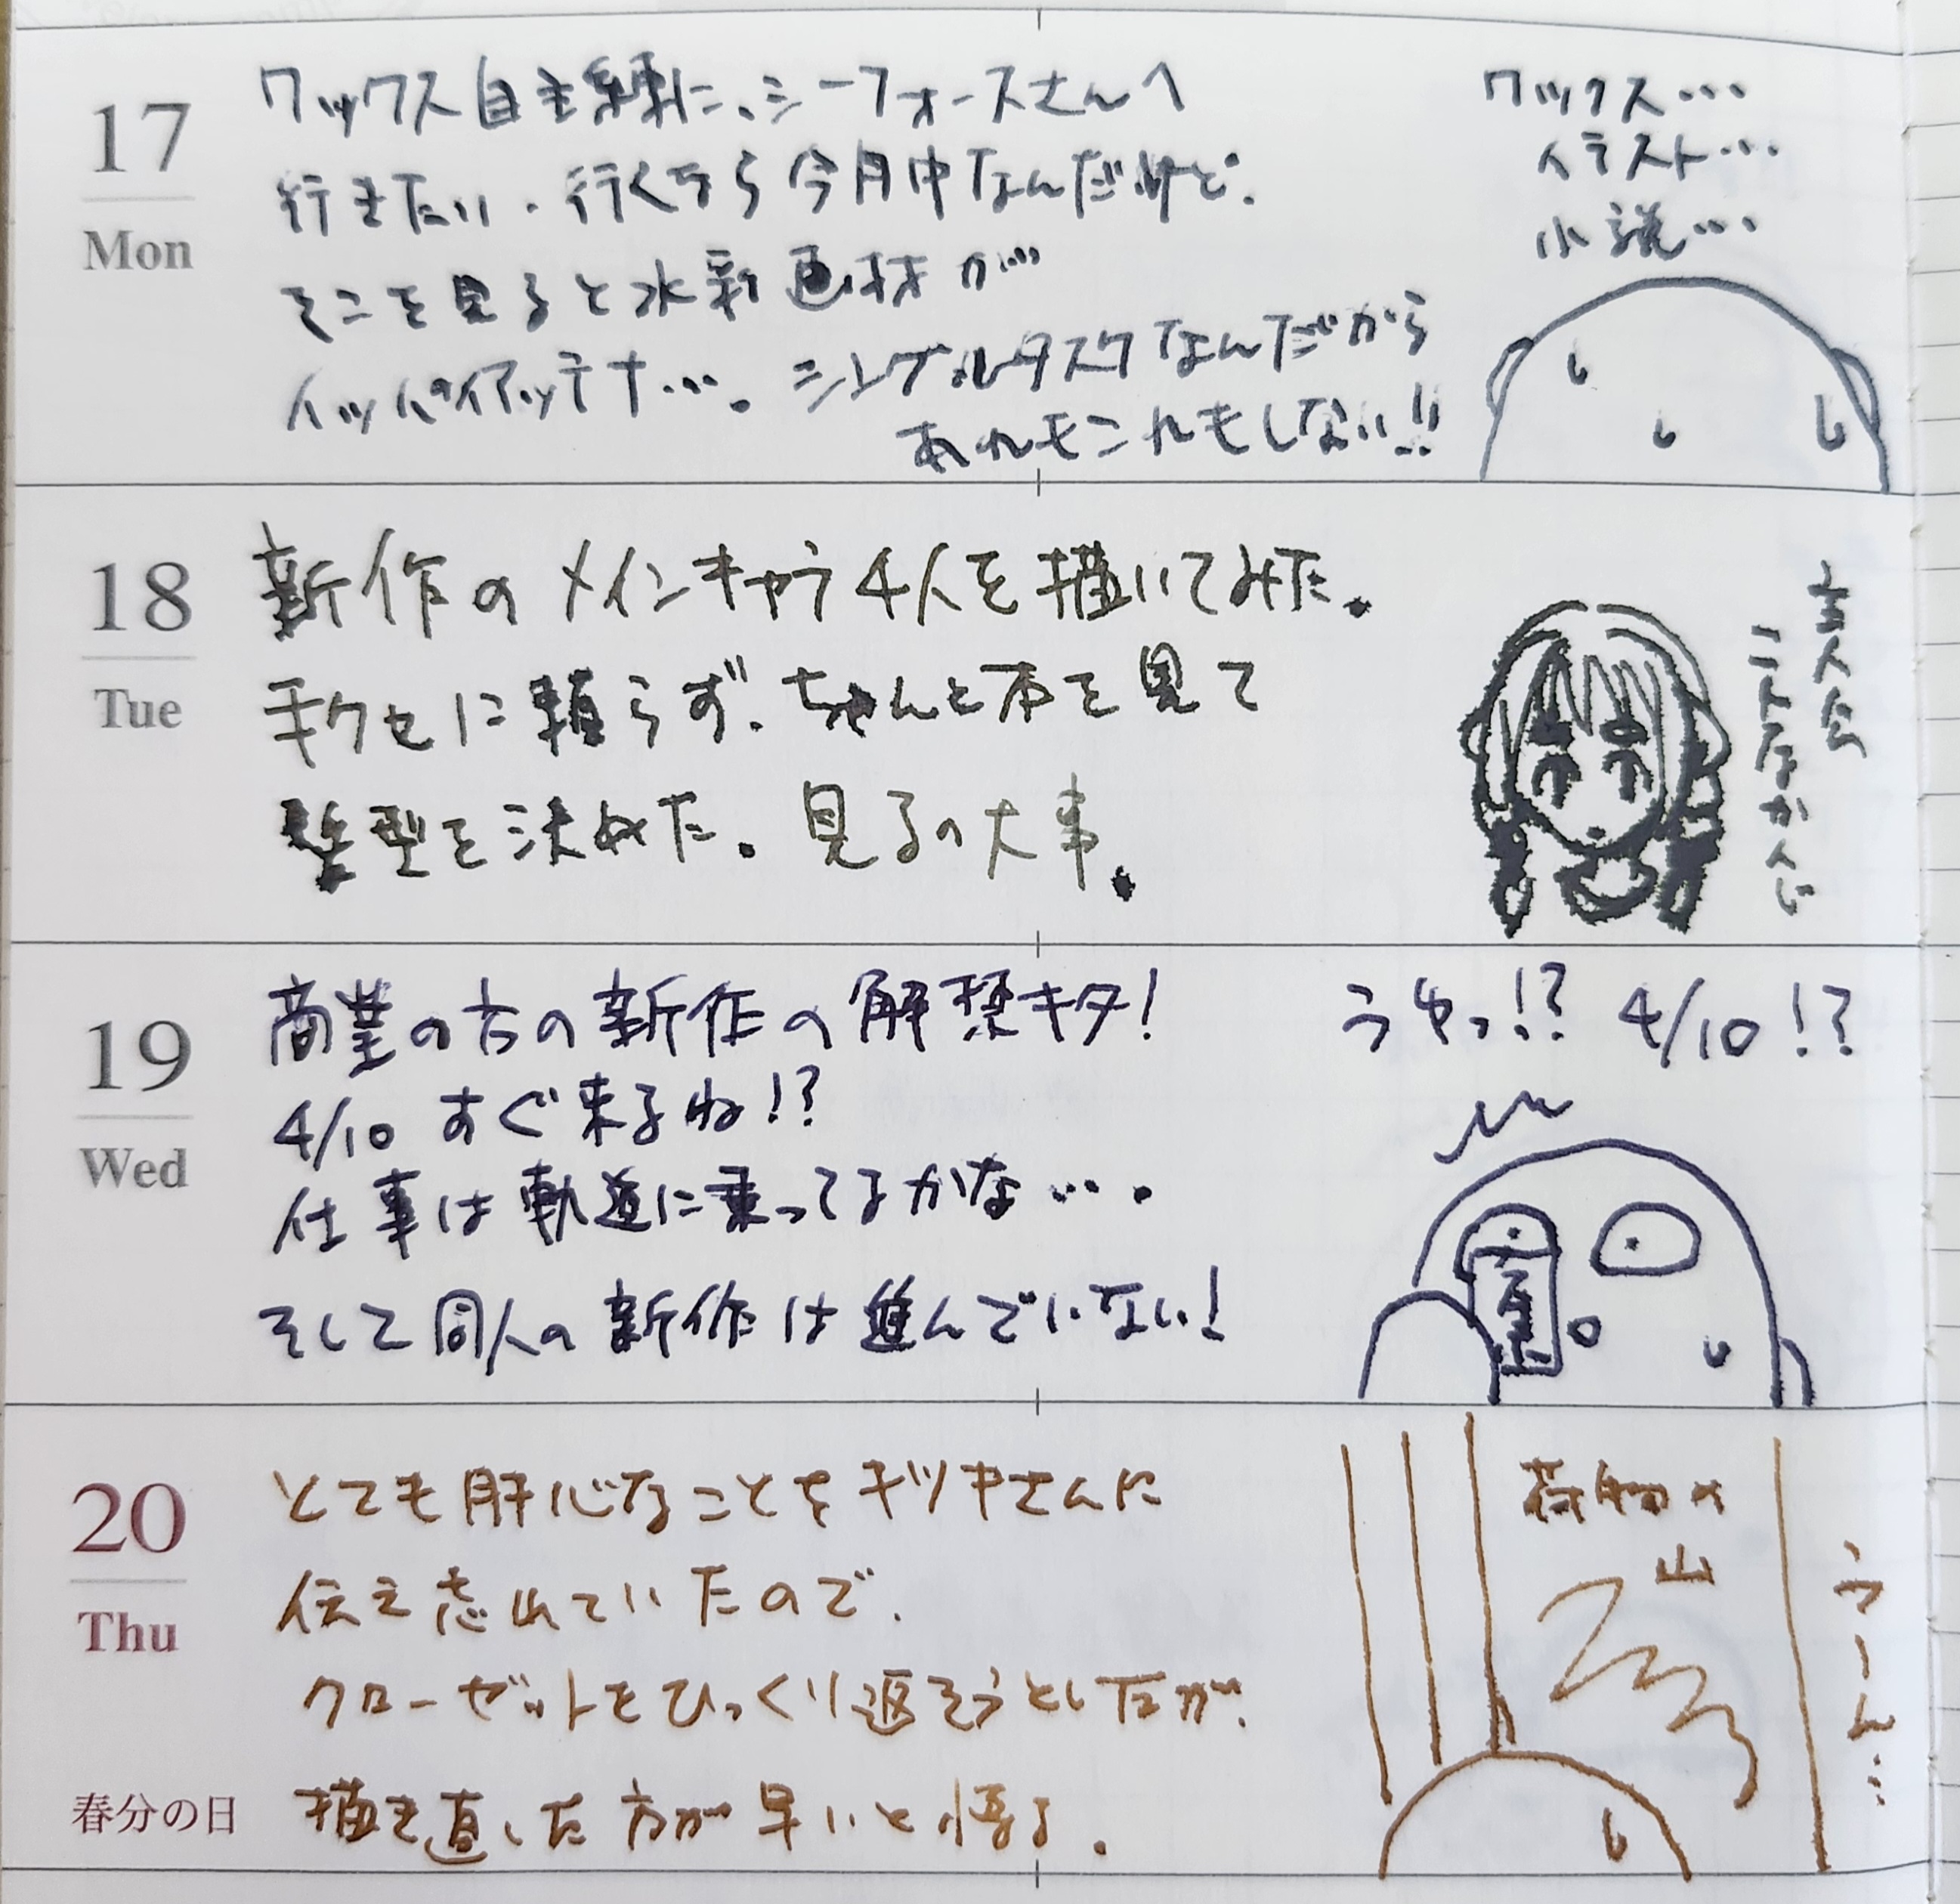 17
Mon
ワックス自主練に、シーフォースさんへ
行きたい。行くなら今月中なんだけど、
そこを見ると水彩画材が…
イッパイアッテナ…。シングルタスクなんだから
あれもこれもしない!!
ワックス…
イラスト…
小説…
18
Tue
新作のメインキャラ4人を描いてみた。
手クセに頼らず、ちゃんと本を見て
髪型を決めた。見るの大事。
主人公
こんなかんじ
19
Wed
商業の方の新作の解禁キタ!
4/10 すぐ来るね!?
仕事は軌道に乗ってるかな…。
そして同人の新作は進んでいない!
うそっ!? 4/10!?
20
Thu
春分の日
とても肝心なことをキツキさんに
伝え忘れていたので、
クローゼットをひっくり返そうとしたが、
描き直した方が早いと悟る。
荷物の
山
うーん…